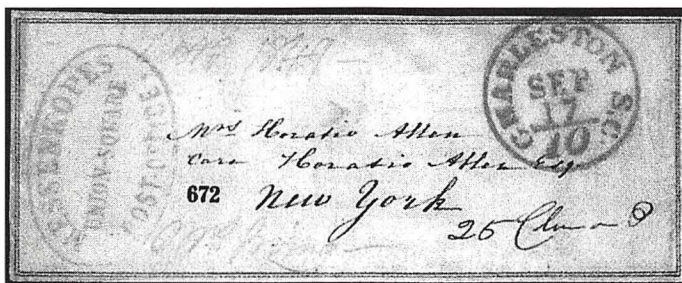 MESSENKOPE'S
UNION SQUARE
POST-OFFICE
CHARLESTON S.C.
SEP
17
10
Mrs Horatio Allen
Care Horatio Allen Esq
672
New York
25